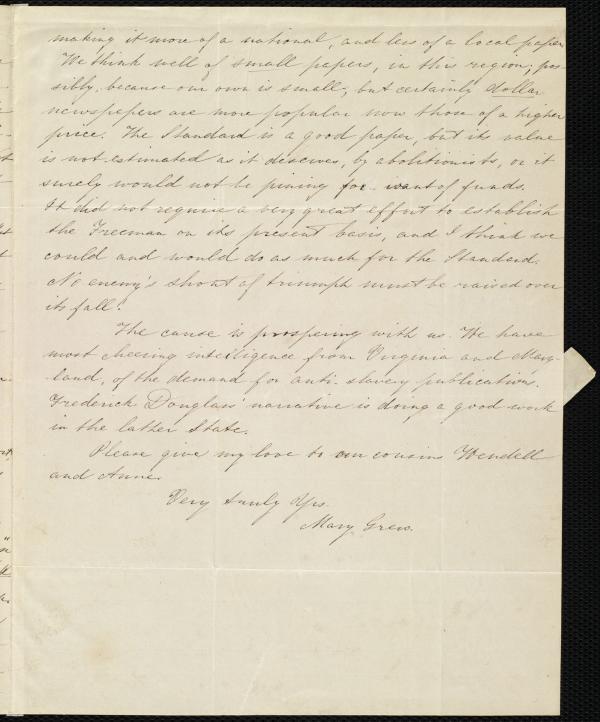 making it more of a national, and less of a local paper.
We think well of small papers, in this region; pos-
sibly, because our own is small; but certainly dollar
newspepers are more popular now those of a higher
price. The Standard is a good paper, but its value
is not estimated as it deserves, by abolitionists, or it
surely would not be pining for want of funds.
It did not require a very great effort to establish
the Freeman on its present basis, and I think we
could and would do as much for the Standard.
No enemy's shout of triumph must be raised over
its fall!
The cause is prospering with us. We have
most cheering intelligence from Virginia and Mary-
land, of the demand for anti-slavery publications.
Frederick Douglass' narrative is doing a good work
in the latter State.
Please give my love to our cousins Wendell
and Anne.
Very truly Yrs.
Mary Grew.